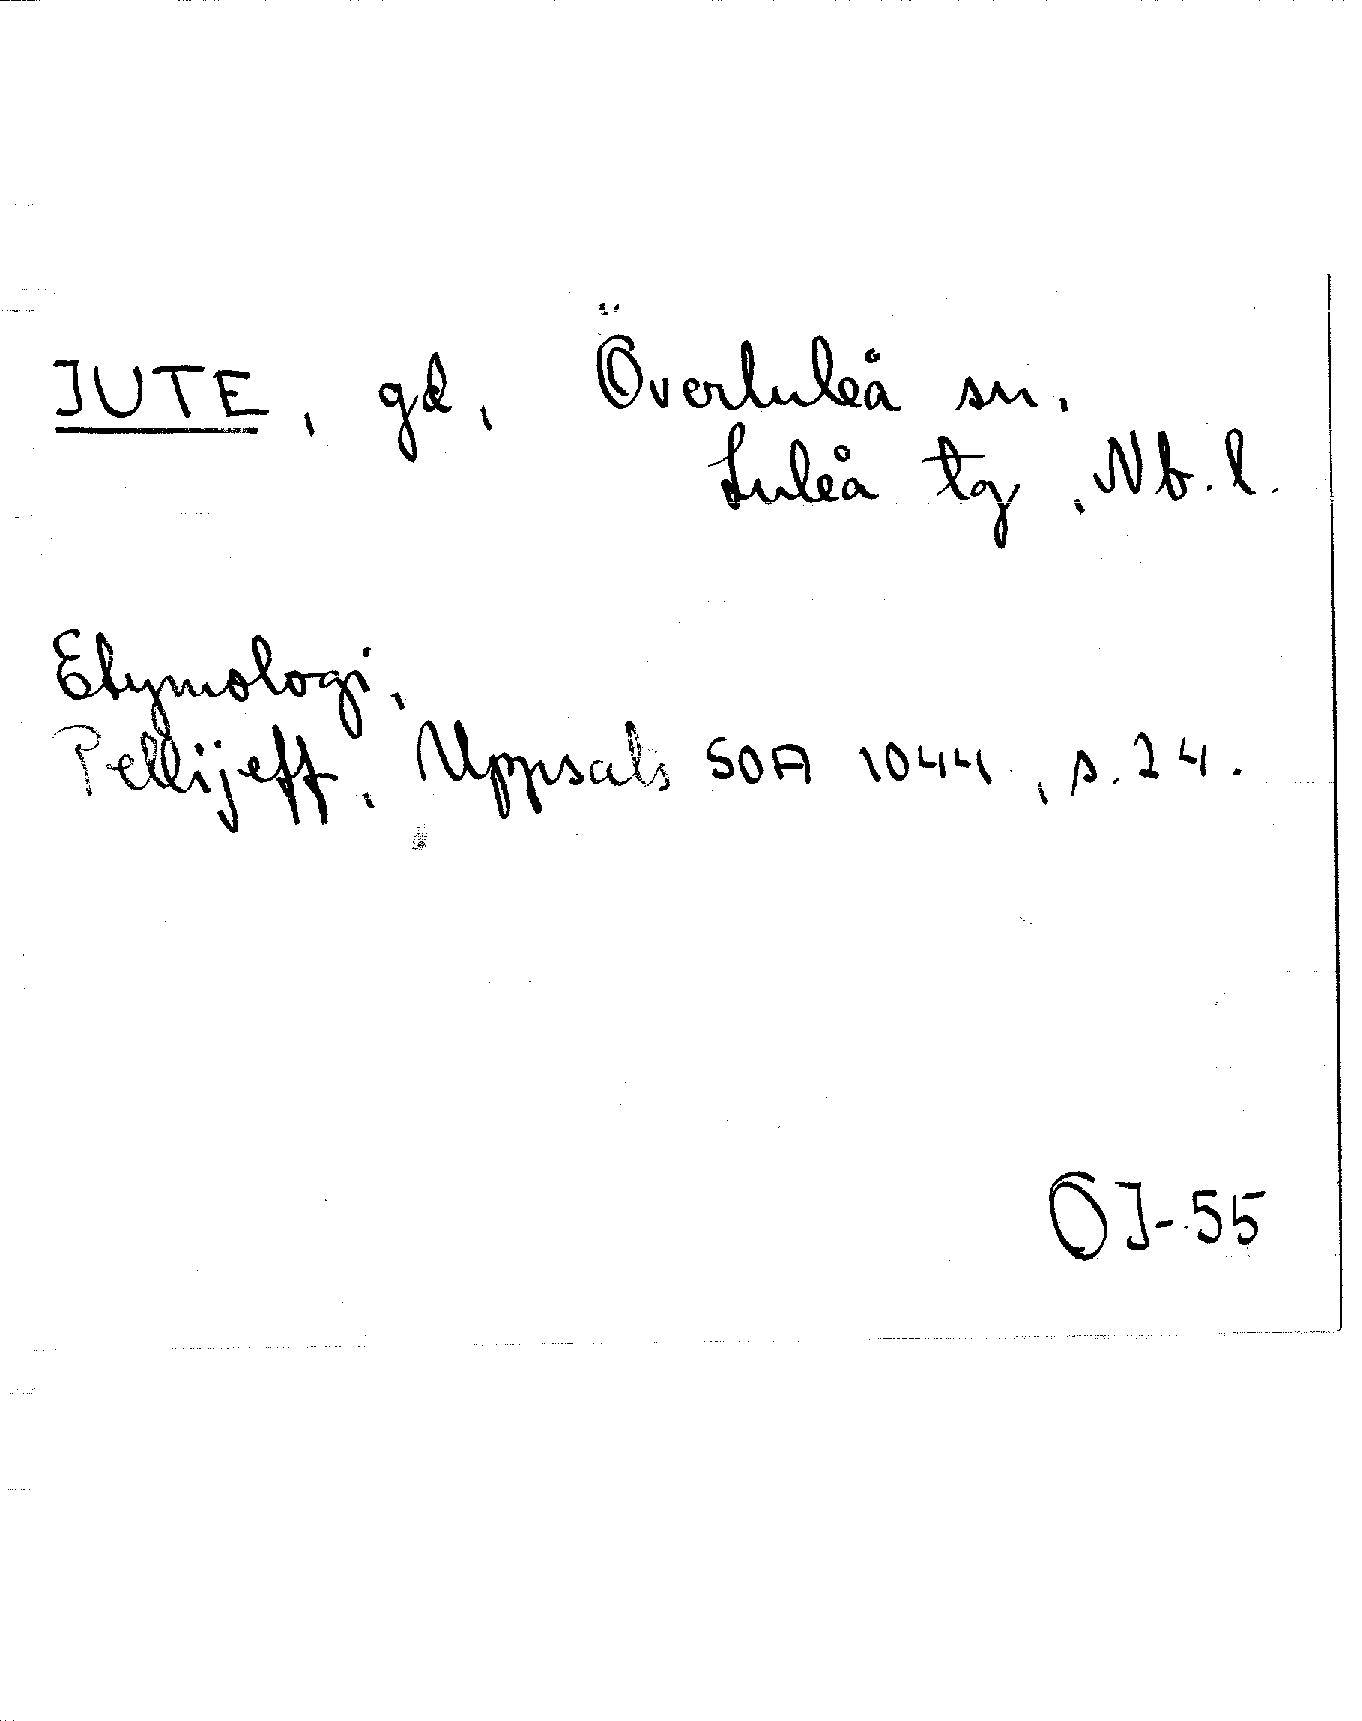 JUTE, gd, Överluleå sn,
Luleå tg, Nb. l.
Etymologi,
Pellijeff, Uppsals SOA 1044, s. 24.
OJ-55